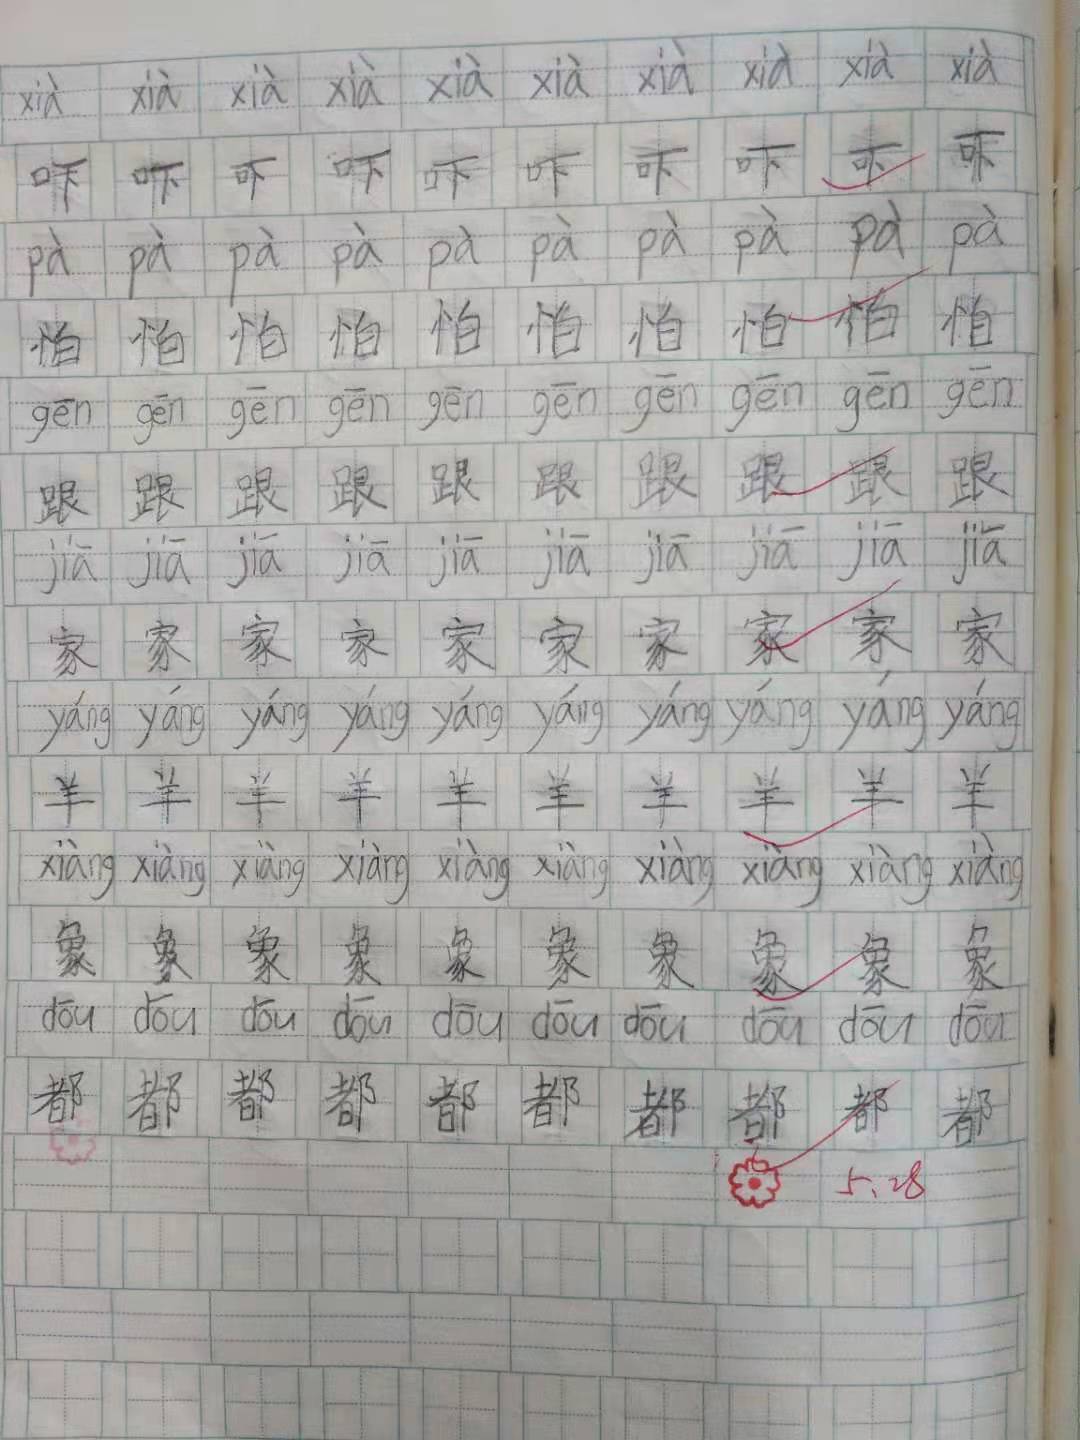 xià xià xià xià xià xià xià xià xià xià
吓 吓 吓 吓 吓 吓 吓 吓 吓 吓
pà pà pà pà pà pà pà pà pà pà
怕 怕 怕 怕 怕 怕 怕 怕 怕 怕
gēn gēn gēn gēn gēn gēn gēn gēn gēn gēn
跟 跟 跟 跟 跟 跟 跟 跟 跟 跟
jiā jiā jiā jiā jiā jiā jiā jiā jiā jiā
家 家 家 家 家 家 家 家 家 家
yáng yáng yáng yáng yáng yáng yáng yáng yáng yáng
羊 羊 羊 羊 羊 羊 羊 羊 羊 羊
xiàng xiàng xiàng xiàng xiàng xiàng xiàng xiàng xiàng xiàng
象 象 象 象 象 象 象 象 象 象
dōu dōu dōu dōu dōu dōu dōu dōu dōu dōu
都 都 都 都 都 都 都 都 都 都
5.28